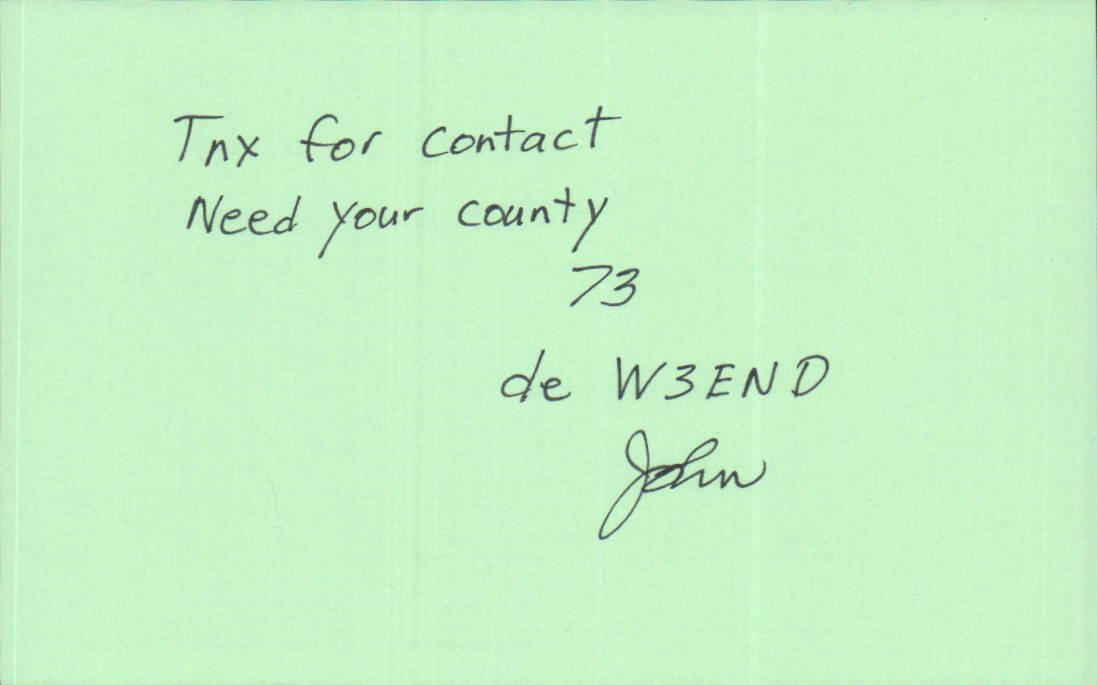 Tnx for contact
Need your county
73
de W3END
John